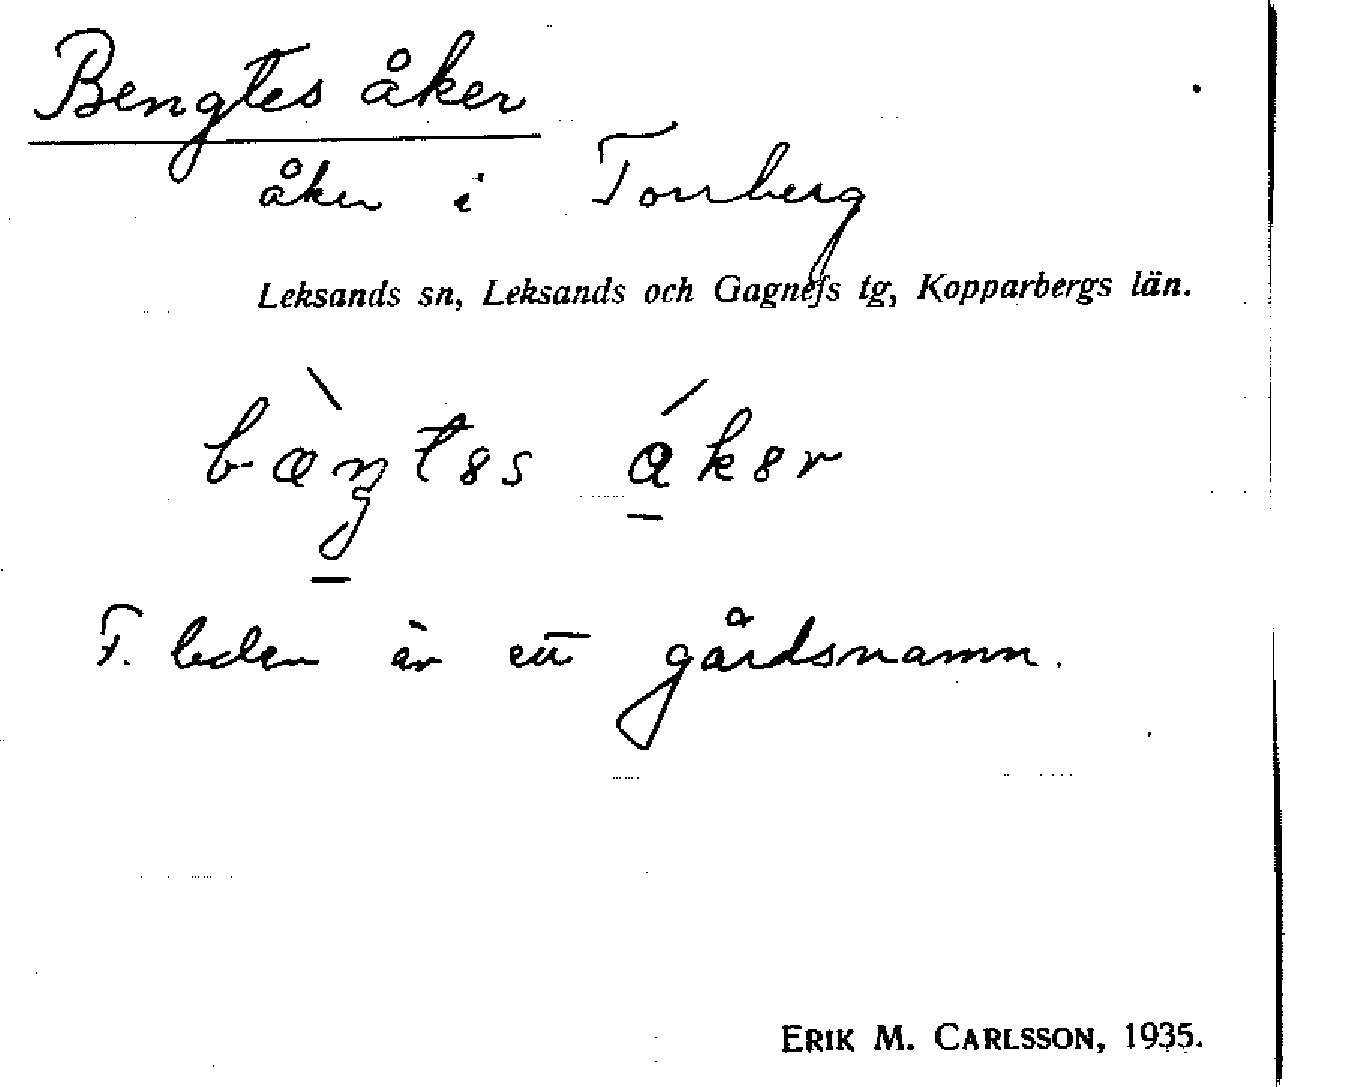 Bengtes åker
åker i Torrberg
Leksands sn, Leksands och Gagnefs tg, Kopparbergs län.
åker
F. leden är ett gårdsnamn.
ERIK M. CARLSSON, 1935.